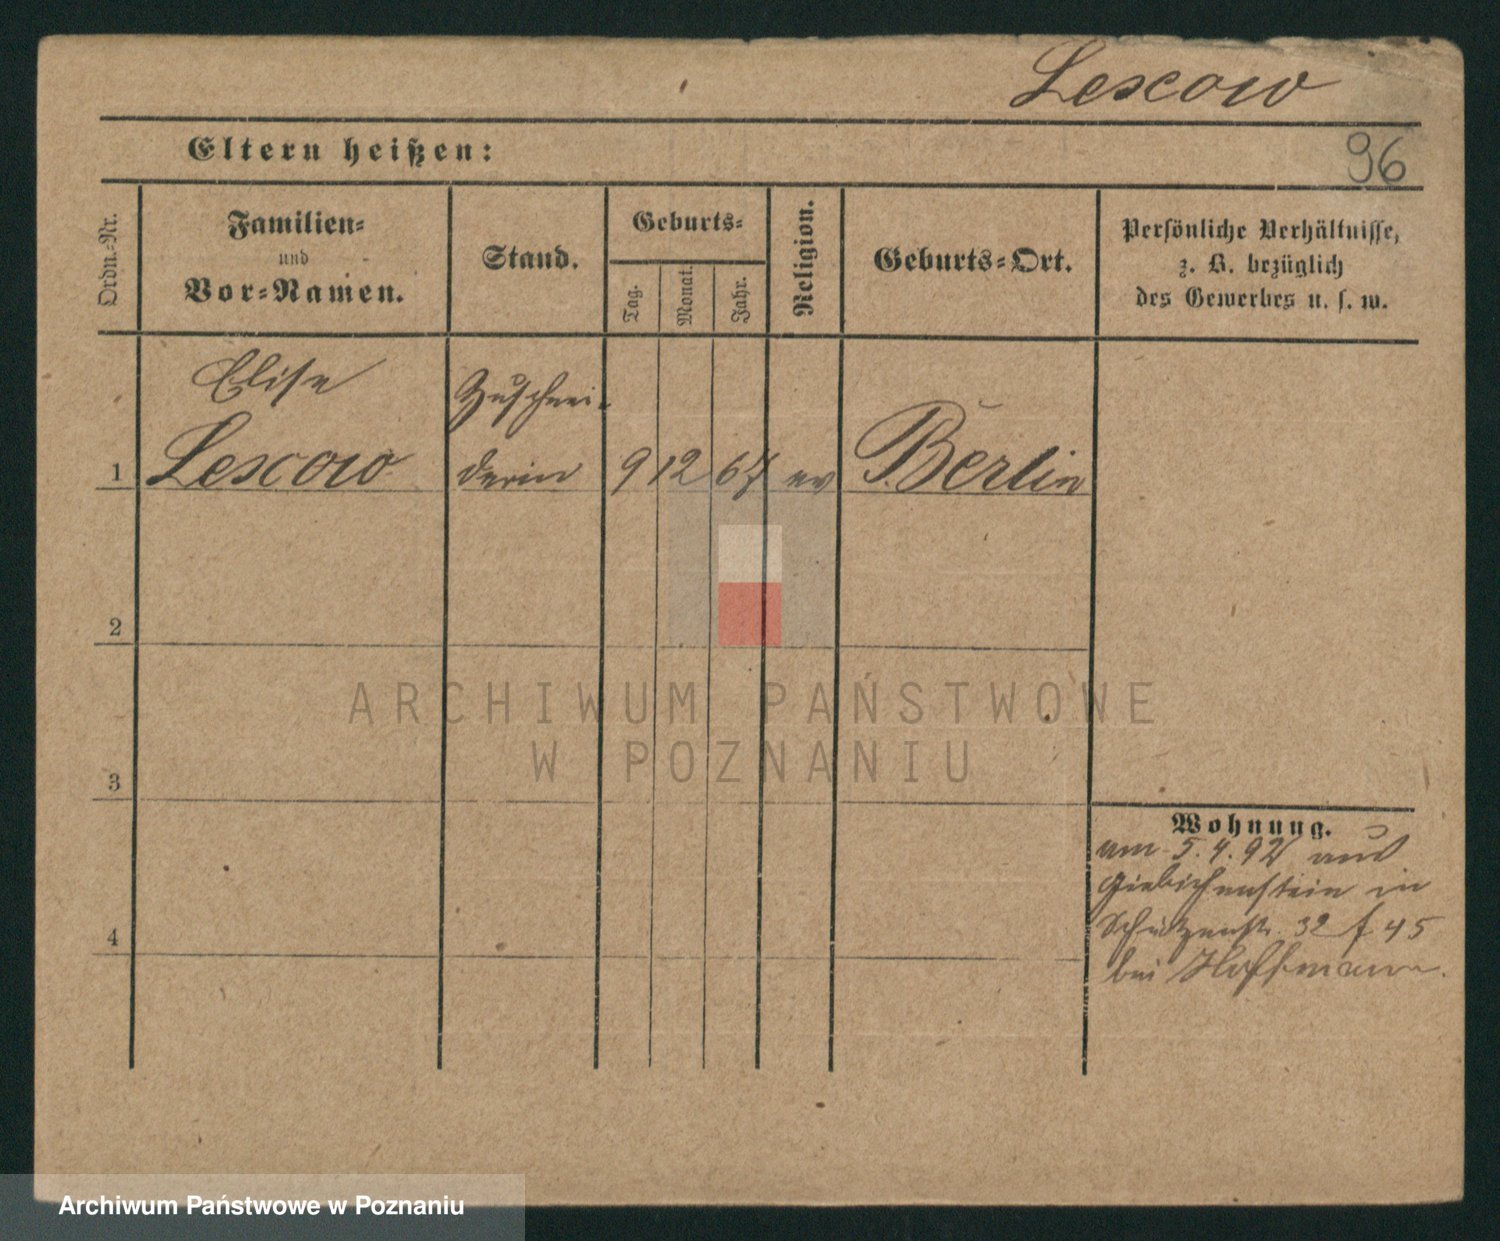 Lescow
96
Eltern heißen:
Ordn.-Nr.
Familien-
und
Vor-Namen.
Stand.
Geburts-
Tag.
Monat.
Jahr.
Religion.
Geburts-Ort.
Persönliche Verhältnisse,
z. B. bezüglich
des Gewerbes u. s. w.
Elise
Zuschnei-
1 Lescow derin 9 12 67 ev Berlin
2
3
4
Wohnung.
am 5.4.92 aus
Giebichenstein in
Schützenstr. 32 f 45
bei Hoffmann.
ARCHIWUM PAŃSTWOWE
W POZNANIU
Archiwum Państwowe w Poznaniu